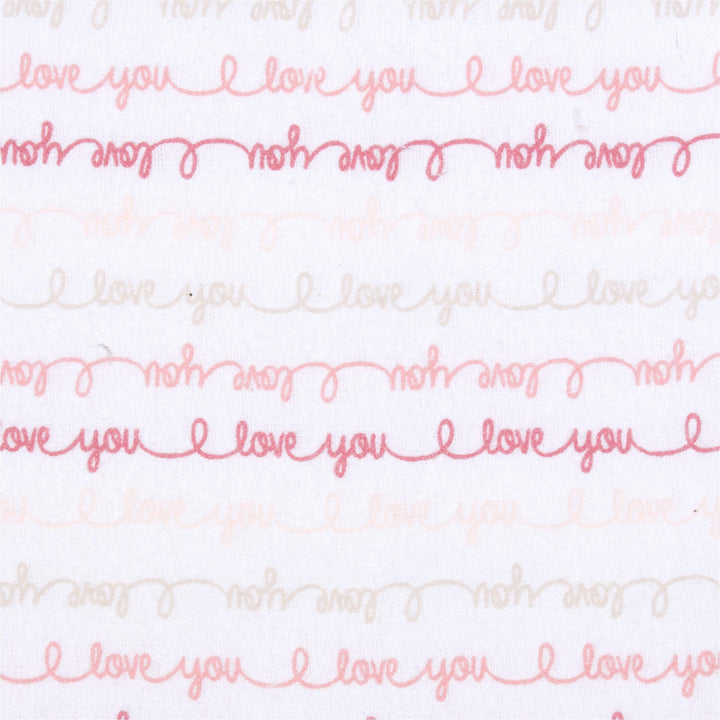 love you I love you I love you I
love you I love you I love you I
I love you I love you I love you
love you I love you I love you I love
I love you I love you I love yo
you I love you I love you I love
ove you I love you I love you I
I love you I love you I love
I love you I love you I love you
I love you I love you I love you